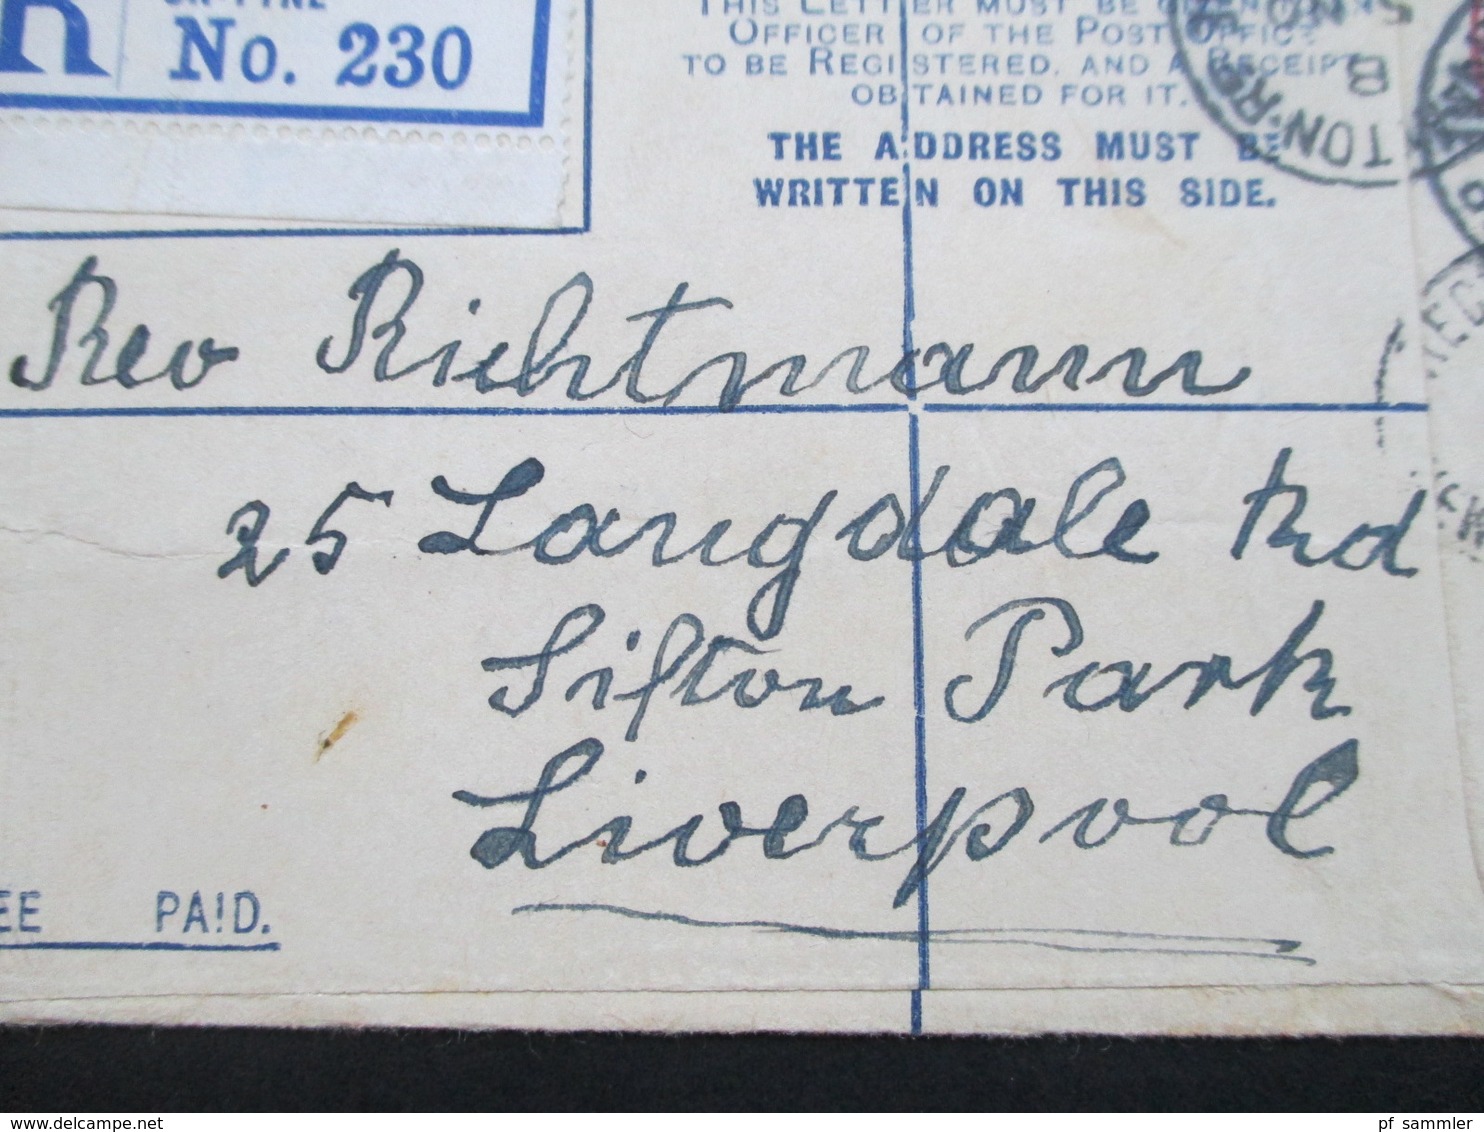 No. 230
THIS LETTER MUST BE GIVEN TO AN
OFFICER OF THE POST OFFICE
TO BE REGISTERED, AND A RECEIPT
OBTAINED FOR IT.
THE ADDRESS MUST BE
WRITTEN ON THIS SIDE.
Rev Richtmann
25 Langdale Rd
Sifton Park
Liverpool
EE PAID.
8
pf_sammler